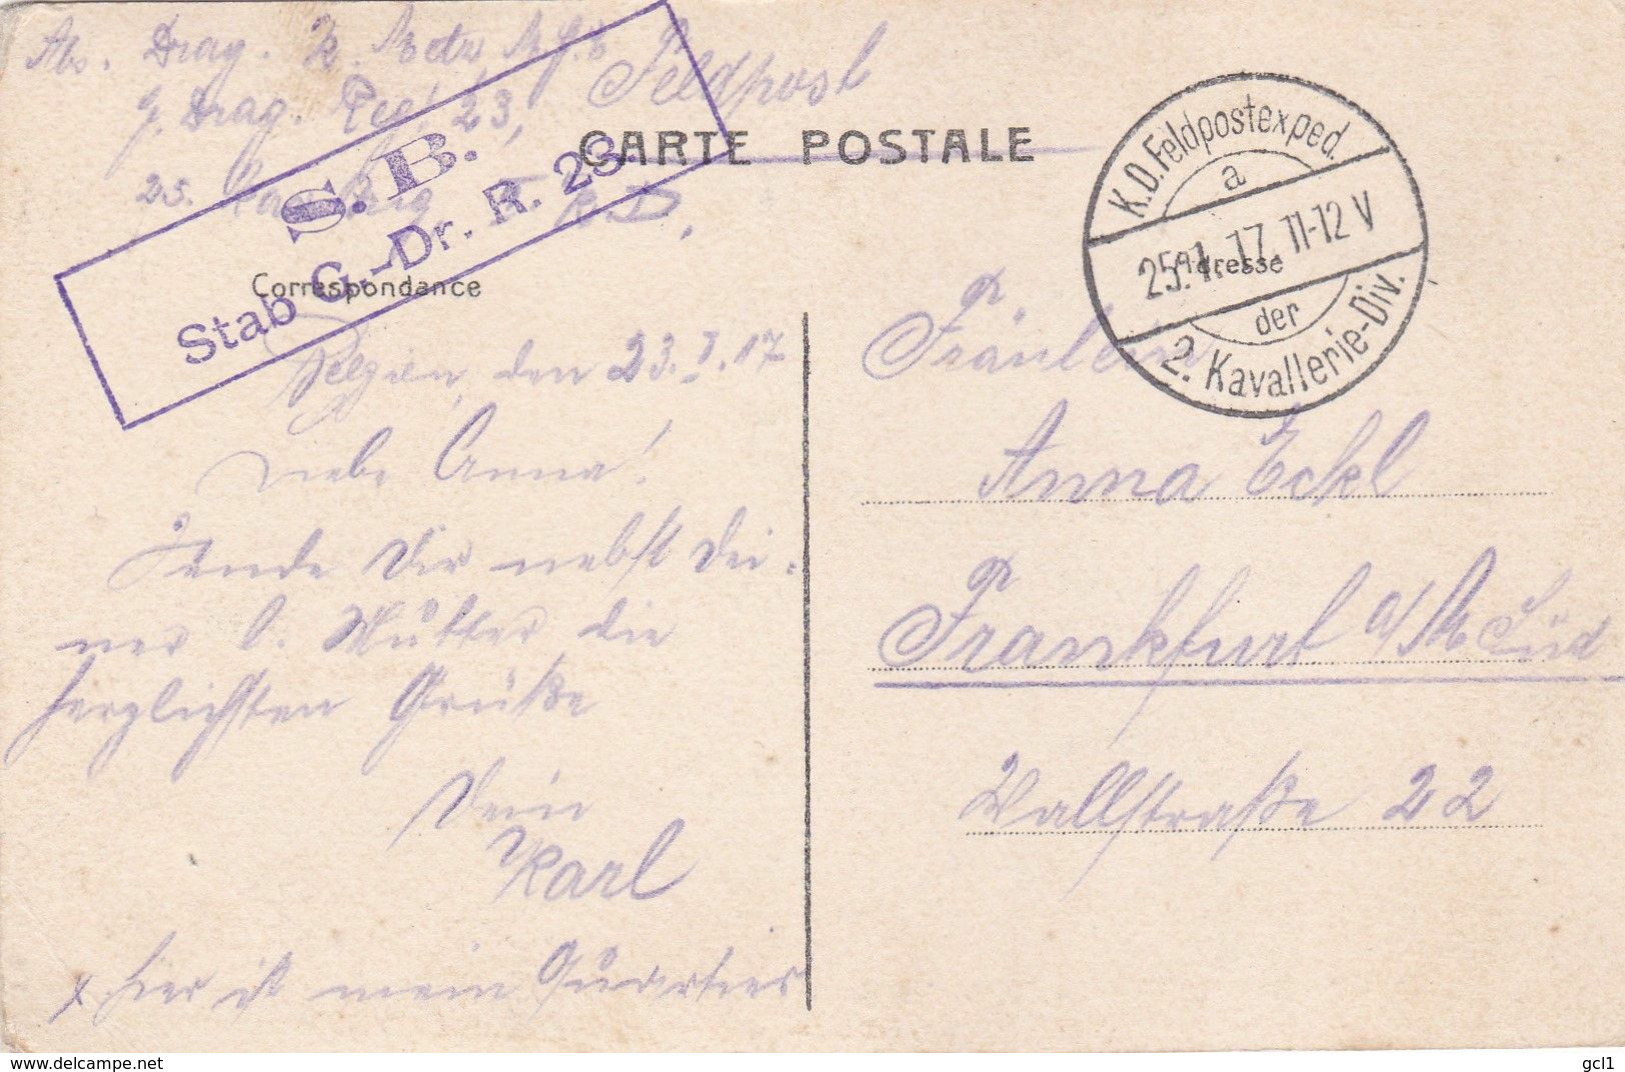 Abs. Drag. K. Metz, M.G.E.
G. Drag. Reg. 23,
25. Kav. Brig. 2. K.D.
Feldpost
S. B.
Stab G.-Dr. R. 23.
CARTE POSTALE
K.D.Feldpostexped.
a
25.1.17. 11-12 V
der
2. Kavallerie-Div.
Correspondance
Adresse
Belgien, den 23.I.17
Liebe Anna!
Sende Dir nebst Dei-
ner l. Mutter die
herzlichsten Grüße
Dein
Karl
x hier ist mein Quartier
Fräulein
Anna Eckl
Frankfurt a/M Süd
Wallstraße 22
delcampe.net
gcl1